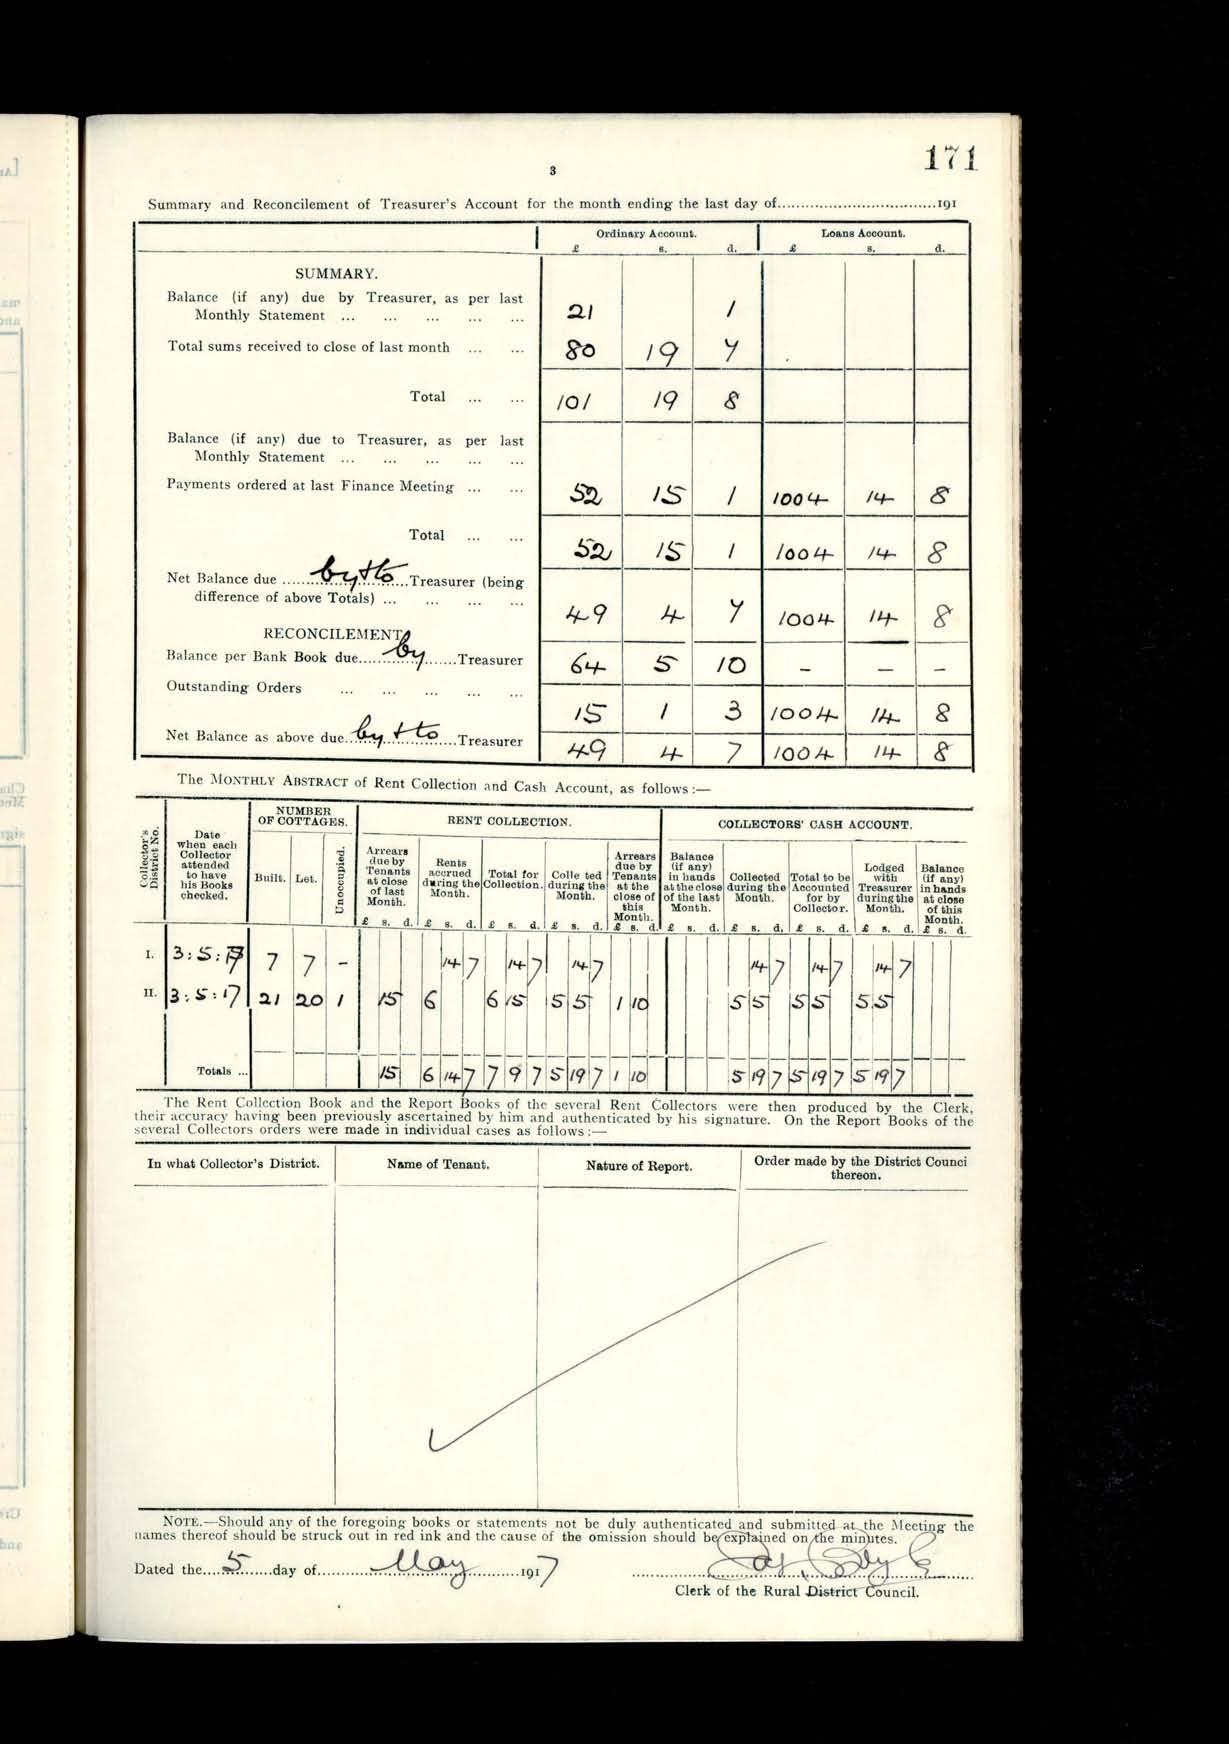 171
3
Summary and Reconcilement of Treasurer's Account for the month ending the last day of..................................191
Ordinary Account. Loans Account.
£ s. d. £ s. d.
SUMMARY.
Balance (if any) due by Treasurer, as per last
Monthly Statement ... ... ... ... ... 21 1
Total sums received to close of last month ... ... 80 19 7
Total ... ... 101 19 8
Balance (if any) due to Treasurer, as per last
Monthly Statement ... ... ... ... ...
Payments ordered at last Finance Meeting ... ... 52 15 1 1004 14 8
Total ... ... 52 15 1 1004 14 8
Net Balance due ......by & to......Treasurer (being
difference of above Totals) ... ... ... ... 49 4 7 1004 14 8
RECONCILEMENT
Balance per Bank Book due......by......Treasurer 64 5 10 - - -
Outstanding Orders ... ... ... ... ... 15 1 3 1004 14 8
Net Balance as above due...by & to...Treasurer 49 4 7 1004 14 8
The MONTHLY ABSTRACT of Rent Collection and Cash Account, as follows :—
Collector's District No.
Date when each Collector attended to have his Books checked.
NUMBER OF COTTAGES.
Built. Let. Unoccupied.
RENT COLLECTION.
Arrears due by Tenants at close of last Month.
Rents accrued during the Month.
Total for Collection.
Colle ted during the Month.
Arrears due by Tenants at the close of this Month.
COLLECTORS' CASH ACCOUNT.
Balance (if any) in hands at the close of the last Month.
Collected during the Month.
Total to be Accounted for by Collector.
Lodged with Treasurer during the Month.
Balance (if any) in hands at close of this Month.
£ s. d. £ s. d. £ s. d. £ s. d. £ s. d. £ s. d. £ s. d. £ s. d. £ s. d. £ s. d.
I. 3:5:17 7 7 - 14 7 14 7 14 7 14 7 14 7 14 7
II. 3:5:17 21 20 1 15 6 6 15 5 5 1 10 5 5 5 5 5 5
Totals ... 15 6 14 7 7 9 7 5 19 7 1 10 5 19 7 5 19 7 5 19 7
The Rent Collection Book and the Report Books of the several Rent Collectors were then produced by the Clerk,
their accuracy having been previously ascertained by him and authenticated by his signature. On the Report Books of the
several Collectors orders were made in individual cases as follows :—
In what Collector's District. Name of Tenant. Nature of Report. Order made by the District Counci
thereon.
NOTE.—Should any of the foregoing books or statements not be duly authenticated and submitted at the Meeting the
names thereof should be struck out in red ink and the cause of the omission should be explained on the minutes.
Dated the...5...day of...May...1917
Clerk of the Rural District Council.